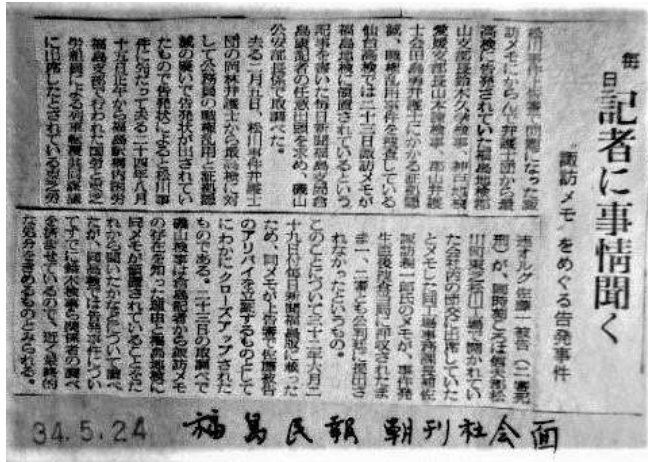 毎日
記者に事情聞く
“諏訪メモ”をめぐる告発事件
松川事件上告審で問題になった諏
訪メモにからんで弁護士団から最
高検に告発されていた福島地検郡
山支部長鈴木久学検事、神戸地検
支部長山本諫検事、郡山弁護
士会田島勇弁護士にかかる証拠隠
滅、職権乱用事件を捜査している
仙台高検では二十三日諏訪メモが
福島地検に領置されているという
記事を書いた毎日新聞福島支局倉
島康記者の任意出頭を求め、磯山
公安部検事係で取調べた。
去る二月五日、松川事件弁護士
団の岡林弁護士から最高検に対
して公務員の職権乱用と証拠隠
滅の疑いで告発状が出されてい
たもので告発状によると松川事
件に列なって去る二十四年八月
十五日正午から福島駅構内国労
福島支部で行われた国労と東芝
労組員による列車転覆共同謀議
に出席したとされている東芝労
連オルグ佐藤一被告（二審死
刑）が、同時刻ごろは信夫郡松
川町東芝松川工場で開かれてい
た会社内の団交に出席していた
とメモした同工場事務課長補佐
諏訪親一郎氏のメモが、事件発
生直後捜査当局に押収されたま
ま一、二審とも公判廷に提出さ
れなかったというもの。
このことについて三十二年六月二
十九日付毎日新聞福島版に載った
ため、同メモが上告審で佐藤被告
のアリバイを立証するものとして
にわかにクローズアップされた
ものである。二十三日の取調べで
磯山検事は倉島記者から諏訪メモ
の存在を知った理由と福島地検に
同メモが領置されていることをだ
れから聞いたかなどについて調べ
たが、同高検では告発事件につい
てすでに鈴木検事ら関係者の調べ
を済ませているので、近く最終的
な処分をきめるものとみられる。
34.5.24 福島民報 朝刊社会面